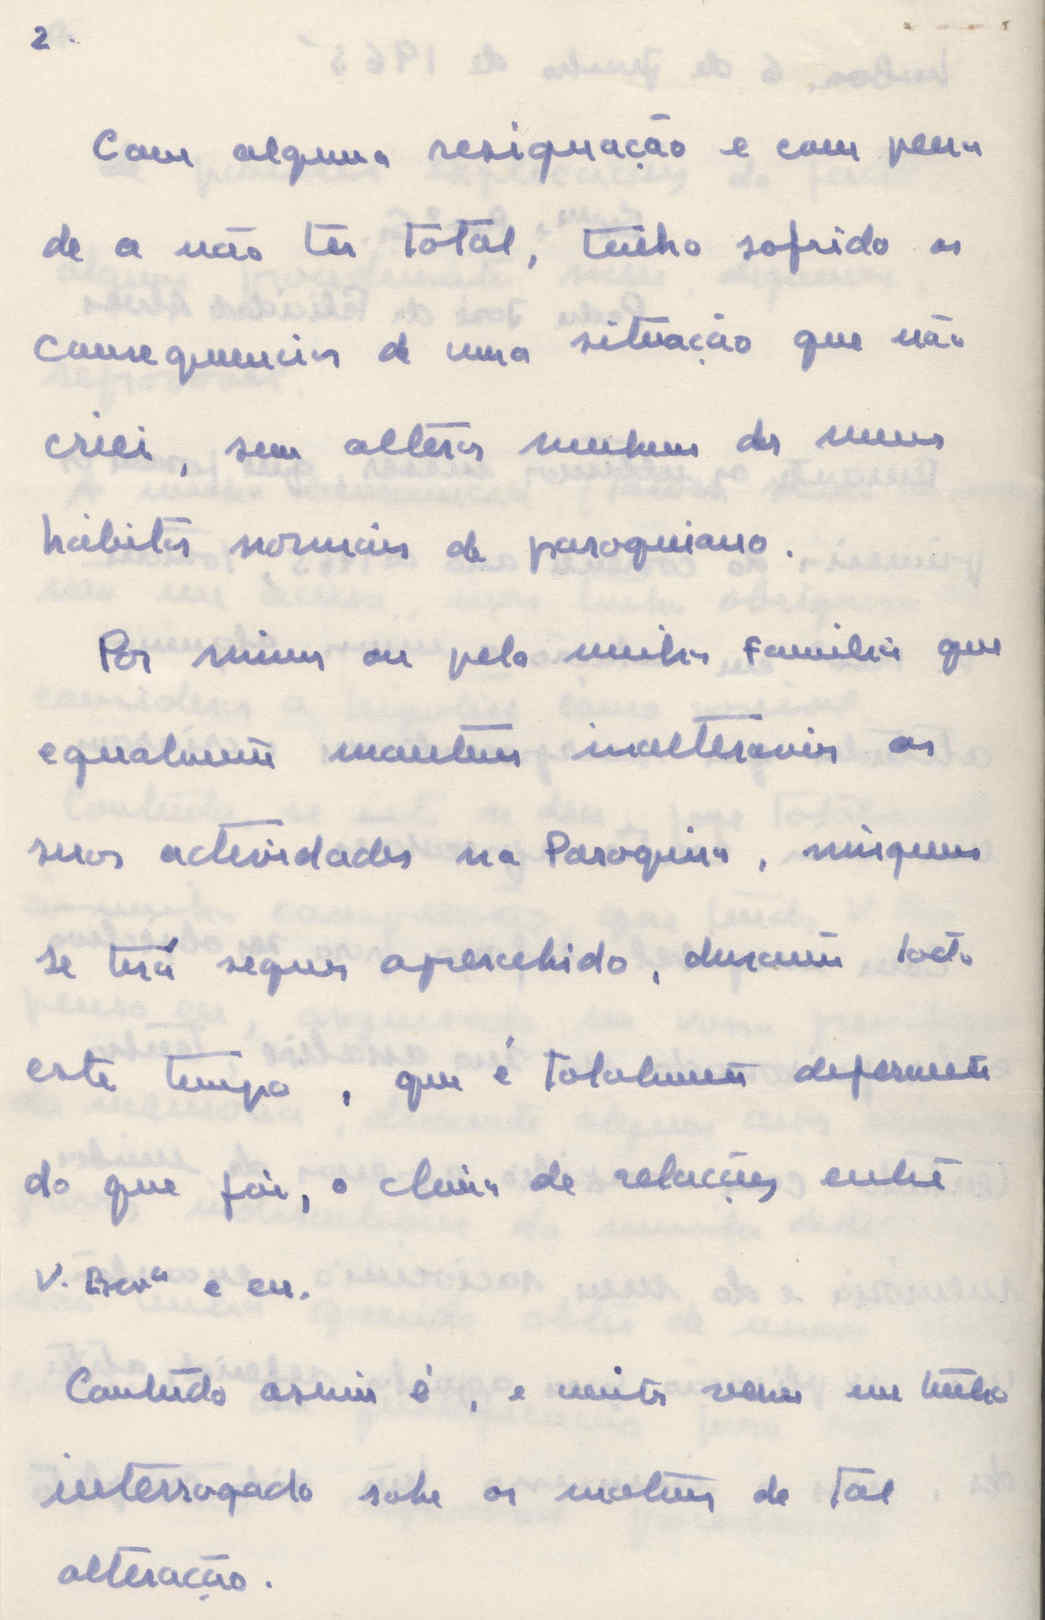 2.
Com alguma resignação e com pena
de a não ter total, tenho sofrido as
consequencias de uma situação que não
criei, sem alterar nenhum dos meus
hábitos normais de paroquiano.
Por mim ou pela minha familia que
egualmente mantem inalteraveis as
suas actividades na Paroquia, ninguem
se terá sequer apercebido, durante todo
este tempo, que é totalmente deferente
do que foi, o clima de relações entre
V. Revª e eu.
Contudo assim é, e muita vezes me tenho
interrogado sobre os motivos de tal
alteração.